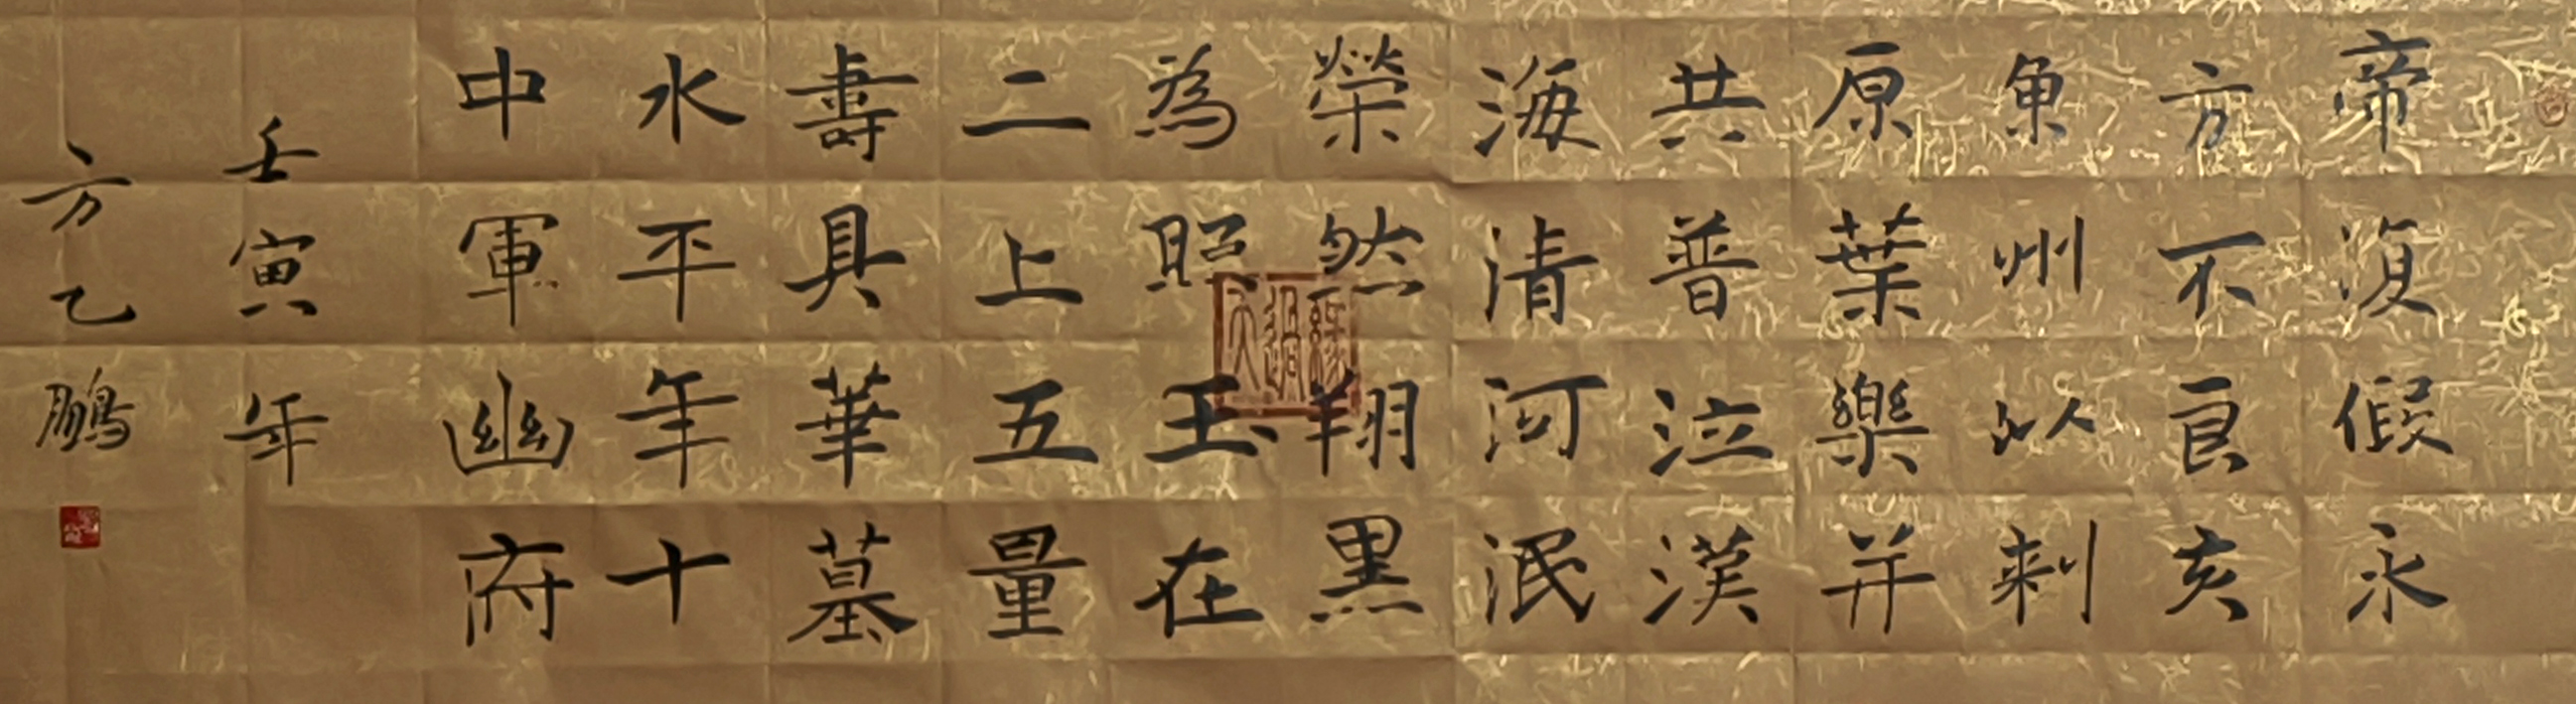 帝復假永
方不良亥
魚州以刺
原葉樂并
共普泣漢
海清河泯
榮然翔黑
為照玉在
二上五量
壽具華墓
水平年十
中軍幽府
壬寅年
方乙鵬